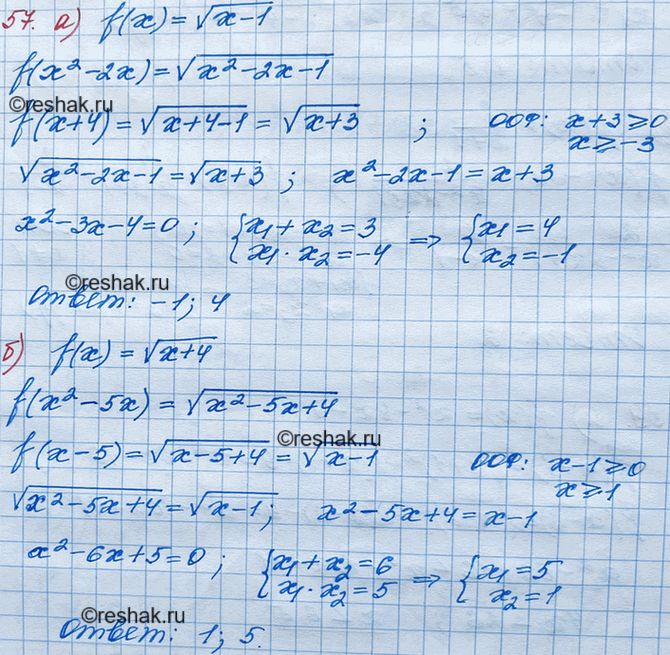 57. а) f(x) = √(x-1)
f(x²-2x) = √(x²-2x-1)
©reshak.ru
f(x+4) = √(x+4-1) = √(x+3) ; ООФ: x+3 ⩾ 0
x ⩾ -3
√(x²-2x-1) = √(x+3) ; x²-2x-1 = x+3
x²-3x-4=0 ; { x₁+x₂=3 ⇒ { x₁=4
x₁·x₂=-4 x₂=-1
©reshak.ru
ответ: -1; 4
б) f(x) = √(x+4)
f(x²-5x) = √(x²-5x+4)
©reshak.ru
f(x-5) = √(x-5+4) = √x-1 ООФ: x-1 ⩾ 0
x ⩾ 1
√(x²-5x+4) = √(x-1) ; x²-5x+4 = x-1
x²-6x+5=0 ; { x₁+x₂=6 ⇒ { x₁=5
x₁·x₂=5 x₂=1
©reshak.ru
ответ: 1; 5.